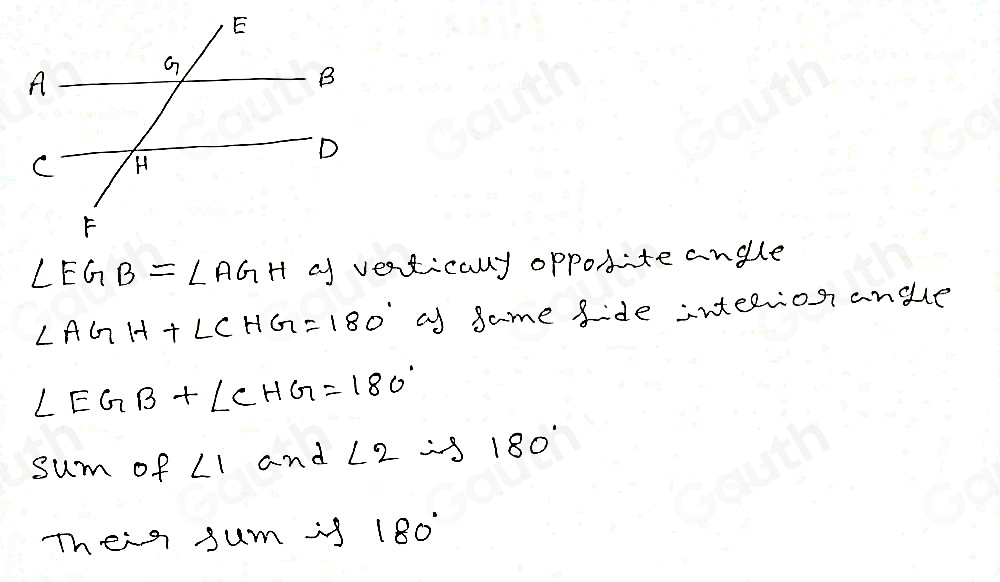 E
G
A B
C H D
F
∠EGB = ∠AGH as vertically opposite angle
∠AGH + ∠CHG = 180° as same side interior angle
∠EGB + ∠CHG = 180°
sum of ∠1 and ∠2 is 180°
Their sum is 180°
Gauth